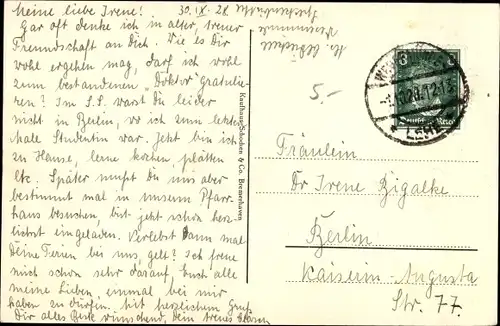 Meine liebe Irene! 30. IX. 28.
Gar oft denke ich in alter, treuer
Freundschaft an Dich. Wie es Dir
wohl ergehen mag, darf ich wohl
zum bestandenen "Doktor" gratulie-
ren? Im S.S. warst Du leider
nicht in Berlin, wo ich zum letzten
Male Studentin war. Jetzt bin ich
zu Hause, lerne kochen, plätten
etc. Später mußt Du uns aber
bestimmt mal in unsem Pfarr-
haus besuchen, bist jetzt schon herz-
lichst eingeladen. Verlebst Dann mal
Deine Ferien bei uns, gelt? Ich freue
mich schon sehr darauf, Euch alle
meine Lieben, einmal bei mir
haben zu dürfen. Mit herzlichem Gruß
Dir alles Beste wünschend, Dein treues
Kaufhaus Schocken & Co. Bremerhaven
5-
Deutsches Reich
Fräulein
Dr Irene Zigalke
Berlin
Kaiserin-Augusta
Str. 77.